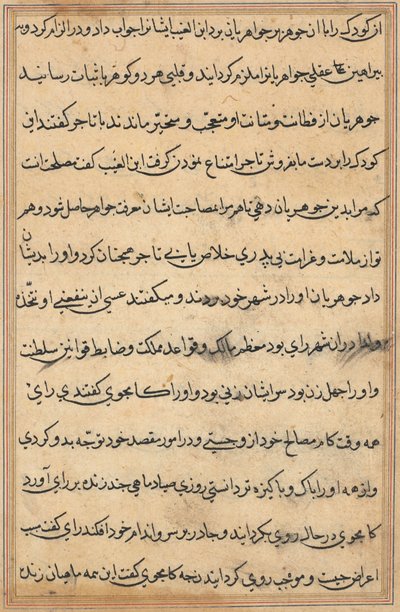 از کودک را با آن جوهر بر جواهریان برد ابن الغیب ایشانرا جواب داد و در الزام کرد و به
براهین عقلی جواهریانرا ملزم کردانید و قلبی هر دو کوهر باثبات رسانید
جوهریان از فطانت و متانت او متعجب و متحیر ماندند با تاجر کفتند این
کودک را بدست ما بفروش تاجر امتناع نمودن کرفت ابن الغیب کفت مصلحت انست
که مرا بدین جوهریان دهی تا هم مرا بمصاحبت ایشان معرفت جواهر حاصل شود و هم
تو از ملامت و غرامت بی پدری خلاص یابی تاجر همچنان کرد و او را بدیشان
داد جوهریان او را در شهر خود بردند و میکفتند عسی ان ینفعنا او نتخذه
ولدا در آن شهر رای بود معظم ممالک و قواعد مملکت و ضابط قوانین سلطنت
و او را چهل زن بود سر ایشان زنی بود او را کامجوی کفتندی رای
همه وقت کام مصالح خود از و جستی و در امور مقصد خود توجه بدو کردی
و از همه او را پاک و پاکیزه تر دانستی روزی صیاد ماهی چند زنده بر رای آورد
کامجوی در حال روی بکردانید و چادر بر سر و اندام خود افکند رای کفت سبب
اعراض چیست و موجب روی کردانیدن چه کامجوی کفت این همه ماهیان زنده